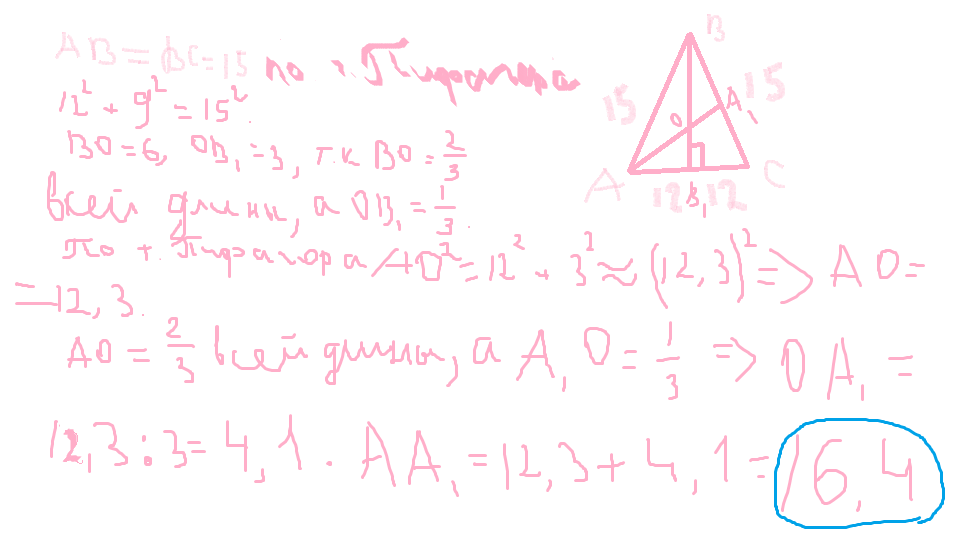 AB = BC = 15 по т. Пифагора
12² + 9² = 15²
BO = 6, OB₁ = 3, т.к BO = 2/3
всей длины, а OB₁ = 1/3.
По т. Пифагора AO² = 12² + 3² ≈ (12,3)² => AO =
= 12,3.
AO = 2/3 всей длины, а A₁O = 1/3 => OA₁ =
12,3 : 3 = 4,1. AA₁ = 12,3 + 4,1 = 16,4
B
15
A₁
15
O
A
12
B₁
12
C